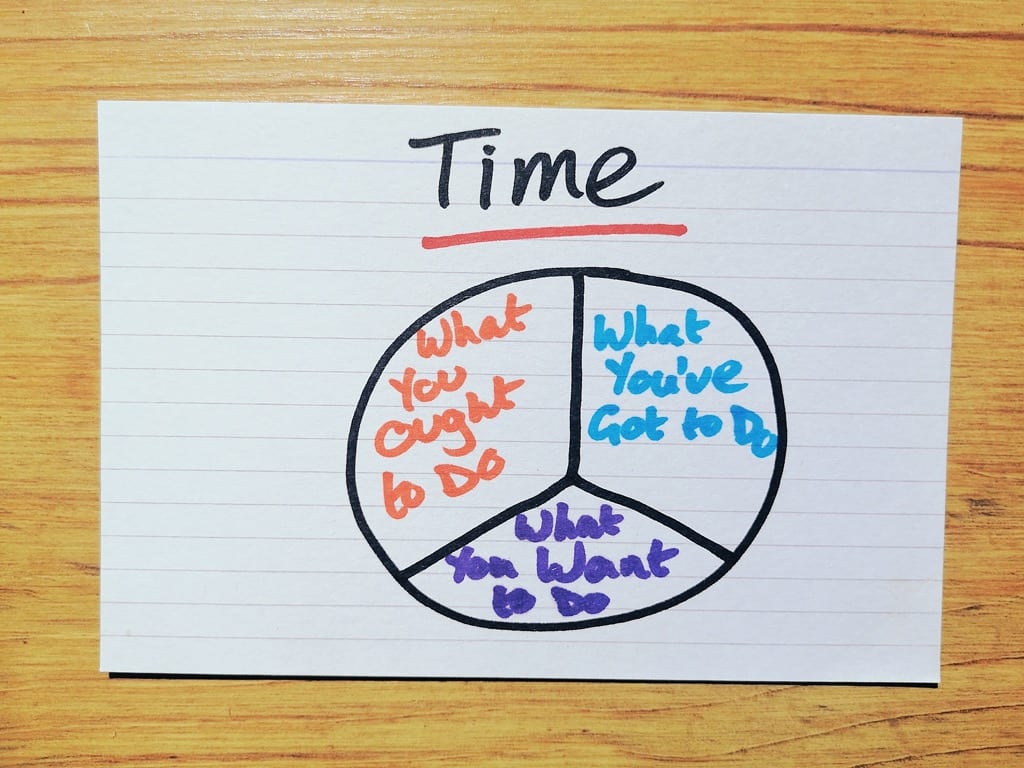 Time
What
You
Ought
to Do
What
You've
Got to Do
What
You Want
to Do